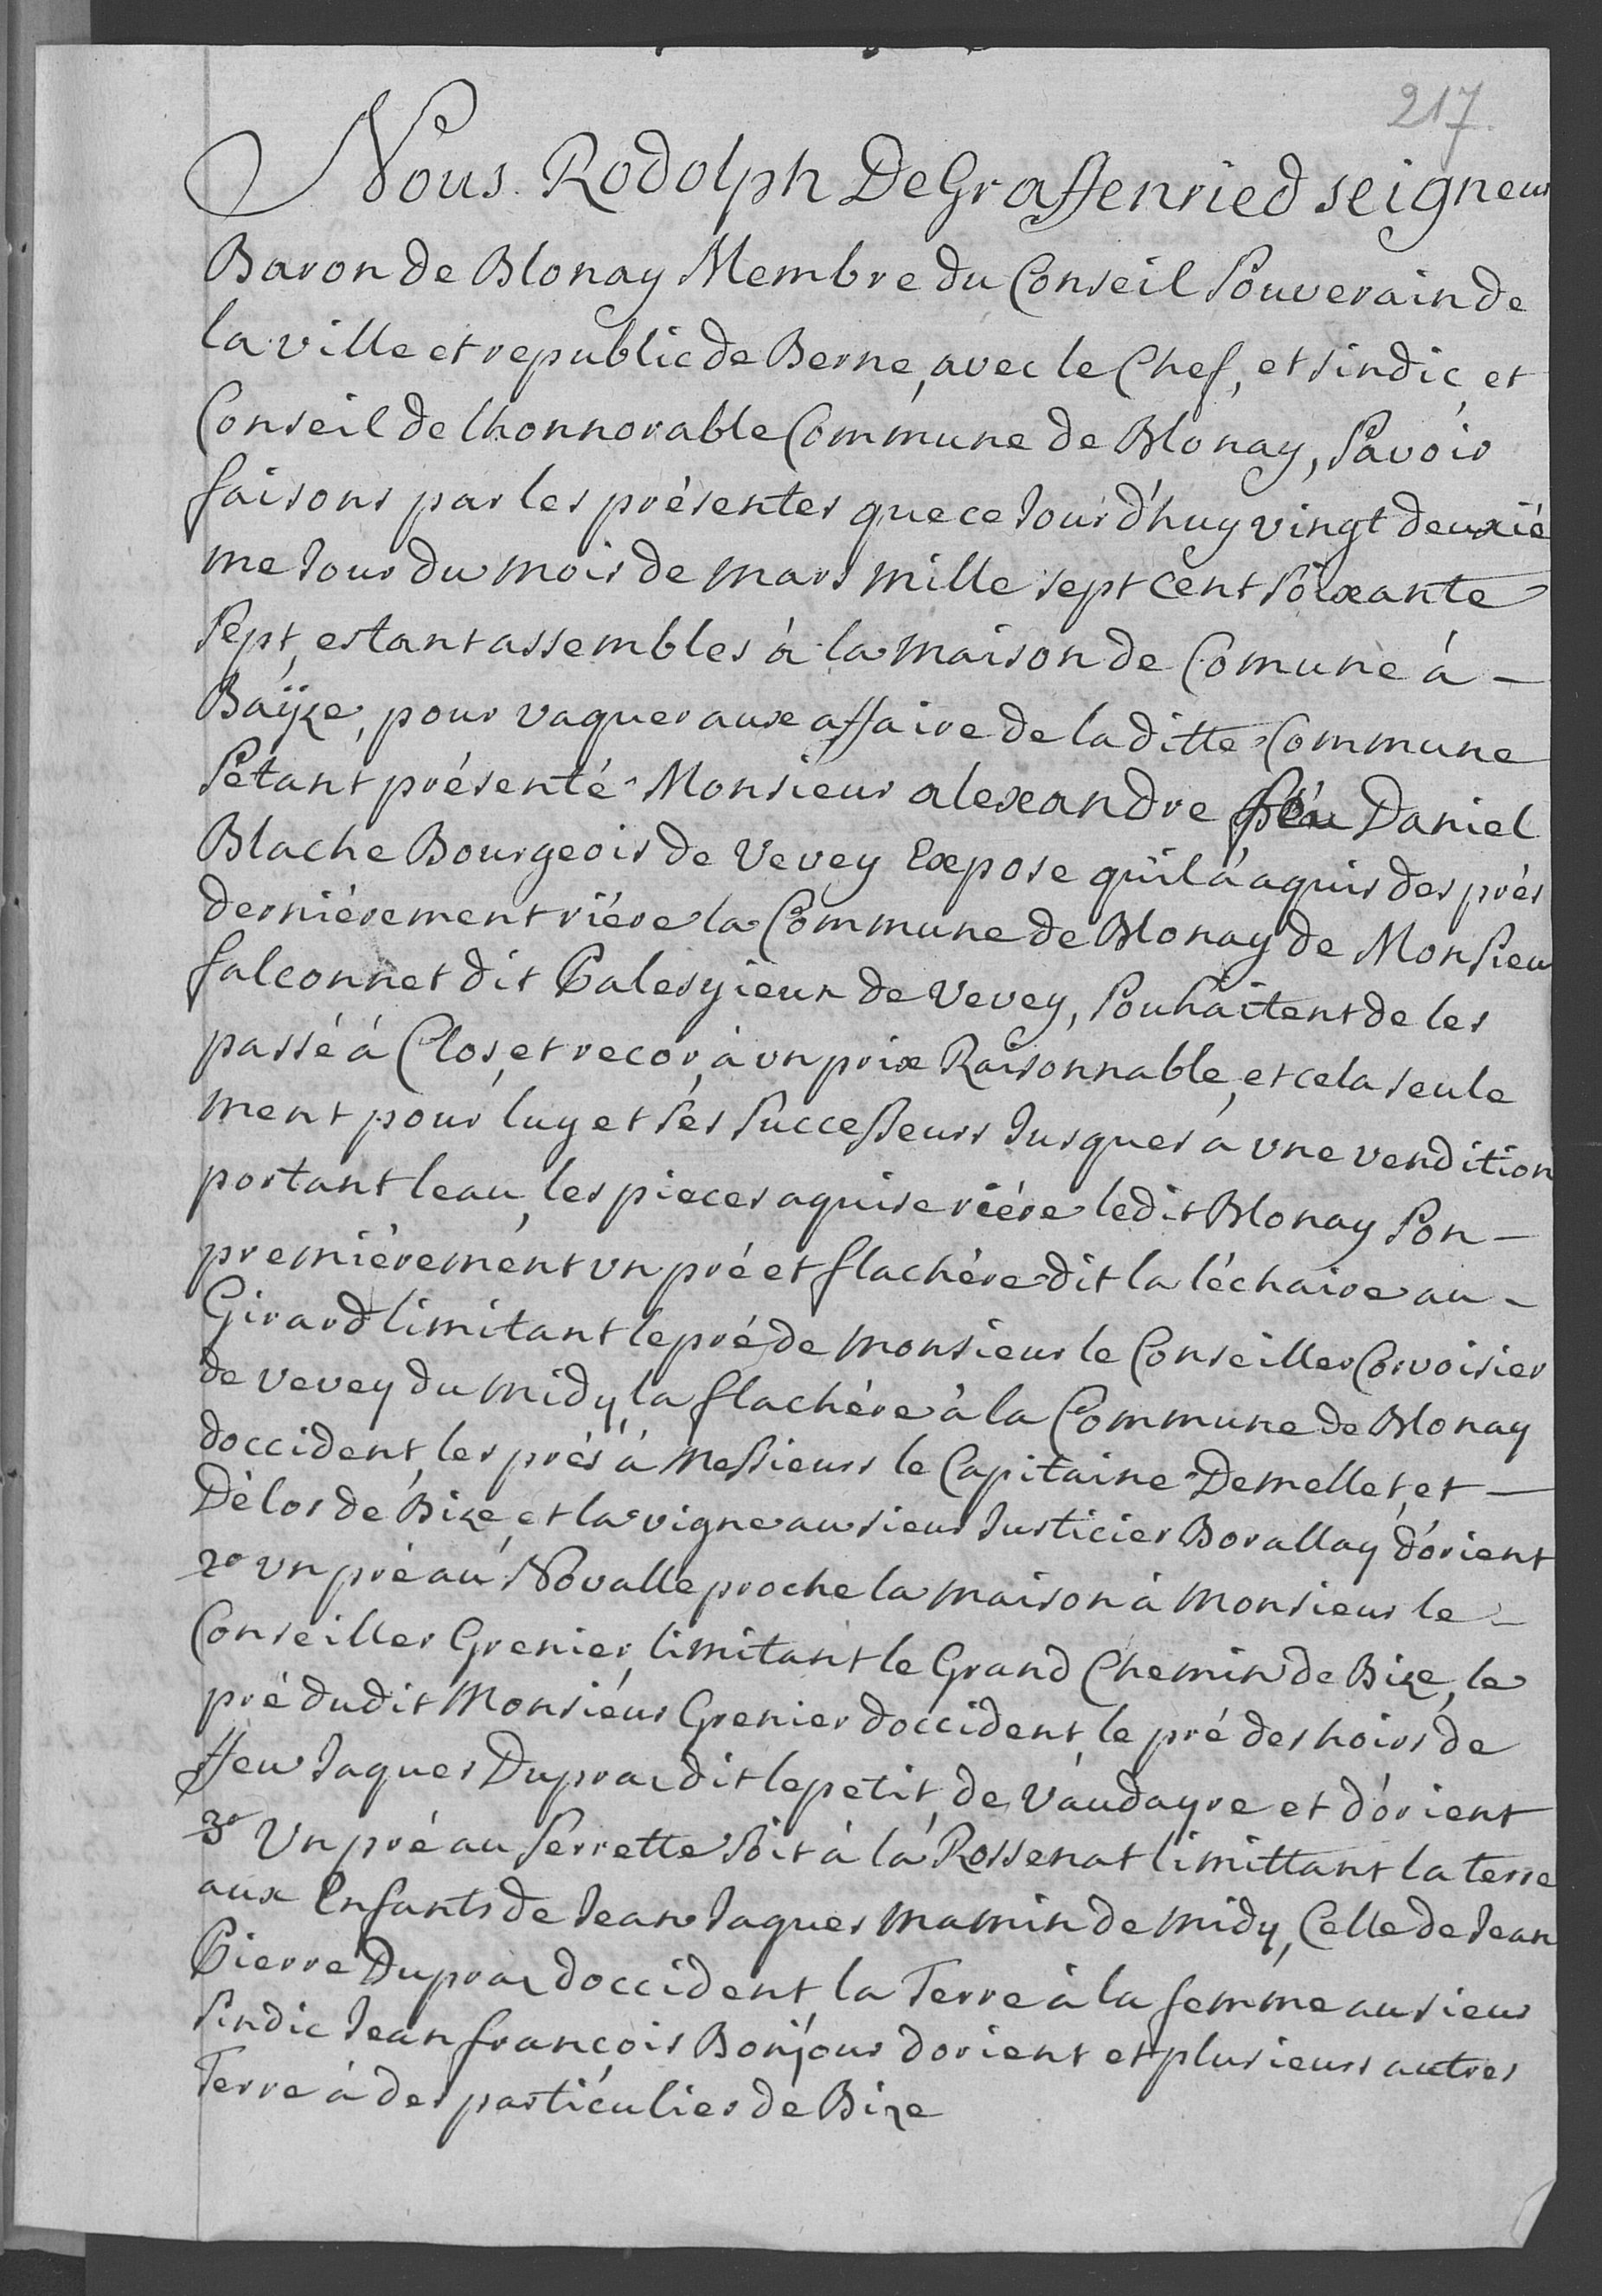 217.
Nous Rodolph DeGraffenried seigneur
Baron de Blonay Membre du Conseil Souverain de
la ville et republic de Berne, avec le Chef, et sindic, et
Conseil de lhonnorable Commune de Blonay, Savoir
faisons par les présentes que ce Jour d'huy vingt deuxié
me Jour du mois de mars mille sept cent soixante
Sept, estant assembles à la maison de Comune à -
Baÿze, pour vaquer aux affaire de la ditte Commune
Sétant présenté Monsieur alexandre feu Daniel
Blache Bourgeois de Vevey Expose quil à aquis des prés
derniérement riére la Commune de Blonay de Monsieur
falconnet dit Palesyieux de Vevey, Souhaitent de les
passé à Clos, et recor, à un prix Raisonnable, et cela seule
ment pour luy et ses successeurs Jusques à une vendition
portant leau, les pieces aquise riére ledit Blonay Son -
premiérement un pré et flachére dit la léchaire au -
Girard limitant le pré de monsieur le Conseiller Corvoisier
de Vevey du midy, la flachére à la Commune de Blonay
doccident, les prés à Messieurs le Capitaine Demellet, et -
Délos de Bize, et la vigne au sieur Justicier Borallay d'orient
2o un pré au Novalle proche la maison à Monsieur le -
Conseiller Grenier, limitant le Grand Chemin de Bize, le
pré dudit Monsieur Grenier doccident, le pré des hoirs de
ffeu Jaques Dupraz dit le petit, de Vaudayre et d'orient
3o Un pré au Serrette Soit à la Rossenat limittant la terre
aux Enfants de Jean Jaques mamin de midy, Celle de Jean
Pierre Dupraz doccident, la Terre à la femme au sieur
Sindic Jean françois Bonjour dorient et plusieurs autres
Terre à des particulier de Bize